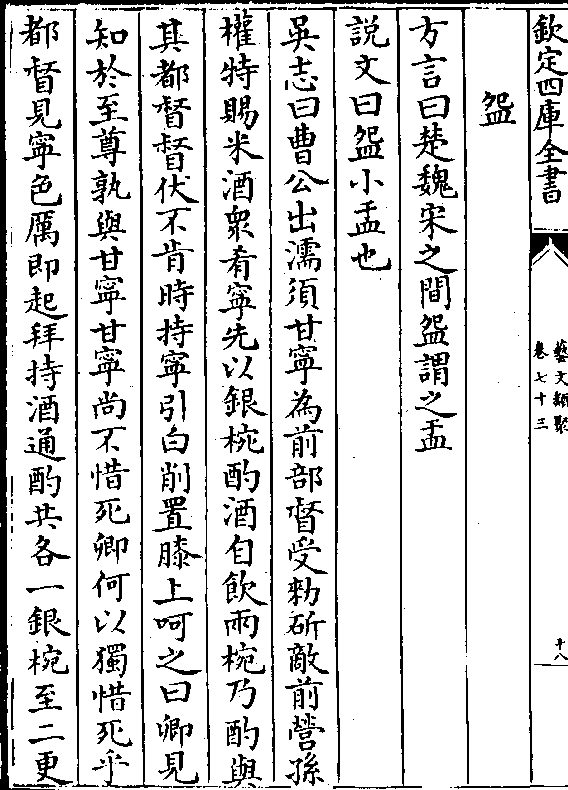 欽定四庫全書
藝文類聚
卷七十三
十八
盌
方言曰楚魏宋之間盌謂之盂
説文曰盌小盂也
吳志曰曹公出濡須甘寧為前部督受勑斫敵前營孫
權特賜米酒衆肴寧先以銀椀酌酒自飲兩椀乃酌與
其都督督伏不肯時持寧引白削置膝上呵之曰卿見
知於至尊孰與甘寧甘寧尚不惜死卿何以獨惜死乎
都督見寧色厲即起拜持酒通酌共各一銀椀至二更